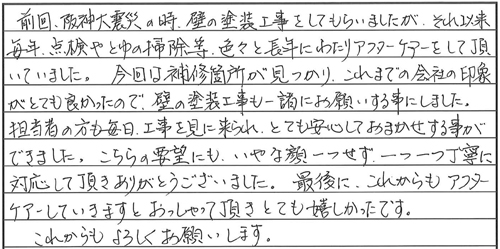 前回、阪神大震災の時、壁の塗装工事をしてもらいましたが、それ以来
毎年、点検やとゆの掃除等、色々と長年にわたりアフターケアーをして頂
いていました。 今回は補修箇所が見つかり、これまでの会社の印象
がとても良かったので、壁の塗装工事も一諸にお願いする事にしました。
担当者の方も毎日、工事を見に来られ、とても安心しておまかせする事が
できました。 こちらの要望にも、いやな顔一つせず、一つ一つ丁寧に
対応して頂きありがとうございました。 最後に、これからもアフター
ケアーしていきますとおっしゃって頂きとても嬉しかったです。
これからもよろしくお願いします。